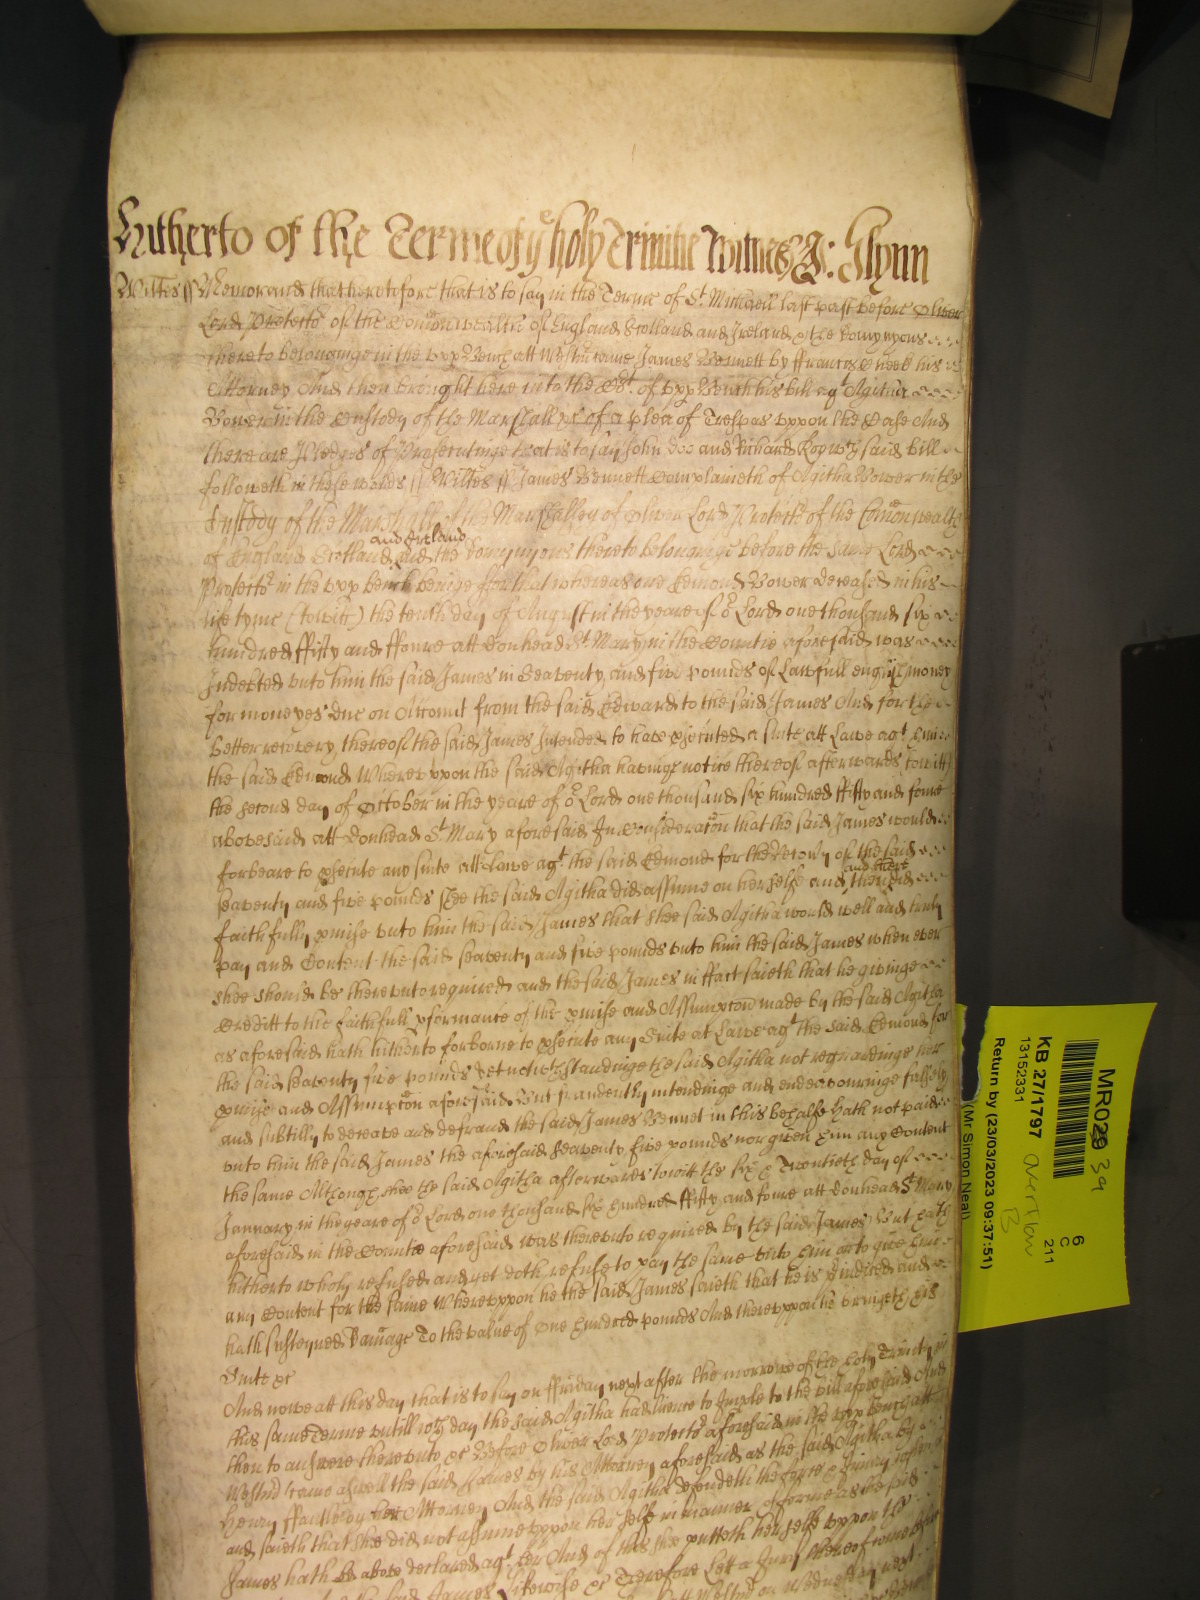 Hitherto of the Terme of ye holy Trinitie Witnes J: Glynn
Wiltes ss Memorand that heretofore that is to say in the Terme of St. Michaell last past before Oliver
Lord Protector of the Comonwealth of England Scotland and Ireland & the Domynyons
thereto belonginge in the vpp Bench att Westm came James Bennett by ffrancis his
Attorney And then brought here into the Cort. of vpp Bench his bill agt Agitha
Bower in the Custody of the Marshall &c of a plea of Trespas vppon the Case And
there are Pledges of Prosecutinge that is to say John Doo and Richard Roo wch said bill
followeth in these words // Wiltes ss James Bennett Complaineth of Agitha Bower in the
Custody of the Marshall of the Marshalsey of Oliver Lord Protector of the Comonwealth
and Ireland
of England Scotland and the Domynyons thereto belonginge before the same Lord
Protector in the vpp bench beinge ffor that whereas one Edmond Bower deceased in his
life tyme (to witt) the tenth day of August in the yeare of or Lord one thousand six
hundred ffifty and ffoure att Donhead St Mary in the Countie aforesaid was
Indebted vnto him the said James in Seaventy and five pounds of Lawfull english money
for moneyes due on Accomt from the said Edward to the said James And for the
better recovery thereof the said James Intended to have psecuted a suite att Lawe agt him
the said Edmond Wherevppon the said Agitha havinge notice thereof afterwards to witt
the second day of October in the yeare of or Lord one thousand six hundred ffifty and foure
abovesaid att Donhead St Mary aforesaid In Consideracon that the said James would
forbeare to psecute any suite att Lawe agt. the said Edmond for the recovy of the said
and there
seaventy and five pounds shee the said Agitha did assume on her selfe and then did
faithfully pmise vnto him the said James that shee said Agitha would well and truly
pay and Content the said seaventy and five pounds vnto him the said James when ever
shee should be therevnto required and the said James in ffact saieth that he givinge
Creditt to the faithfull pformance of the pmise and Assumpton made by the said Agitha
as aforesaid hath hitherto forborne to psecute any Suite at Lawe agt the said Edmond for
the said seaventy five pounds Yet notwthstandinge the said Agitha not reguardinge her
pmise and Assumpcon aforesaid But fraudently intendinge and endeavouringe falsely
and subtilly to deceave and defraud the said James Bennet in this behalfe hath not paid
vnto him the said James the aforesaid seaventy five pounds nor given him any Content
the same Although shee the said Agitha afterwards to witt the six & Twentieth day of
January in the yeare of or Lord one thousand six hundred ffifty and foure att Donhead St Mary
aforesaid in the Countie aforesaid was therevnto required by the said James But hath
hitherto wholy refused and yet doth refuse to pay the same vnto him or to give him
any Content for the same Wherevppon he the said James saieth that he is Jndiced and
hath susteyned Damage To the value of One hundred pounds And therevppon he bringeth his
Suite &c
And nowe att this day that is to say on ffriday next after the morrowe of the holy Trinity in
this same Terme vntill wch day the said Agitha had licence to Imple to the bill aforesaid And
then to answere therevnto &c Before Oliver Lord Protector aforesaid in the vpp bench att
Westm came aswell the said James by his Attorney aforesaid as the said Agitha by
Henry ffaulkner her Attorney And the said Agitha defendeth the force & Iniury
and saieth that she did not assume vppon her selfe in manner & forme as the said
James hath be above declared agt. her And of this she putteth her selfe vppon the
the said James Likewise &c Therefore Lett a Jury thereof come
att Westm on Wednesday next
MR029 39
KB 27/1797
13152331
Return by (23/03/2023 09:37:51)
(Mr Simon Neal)
overflow
B
6
C
211